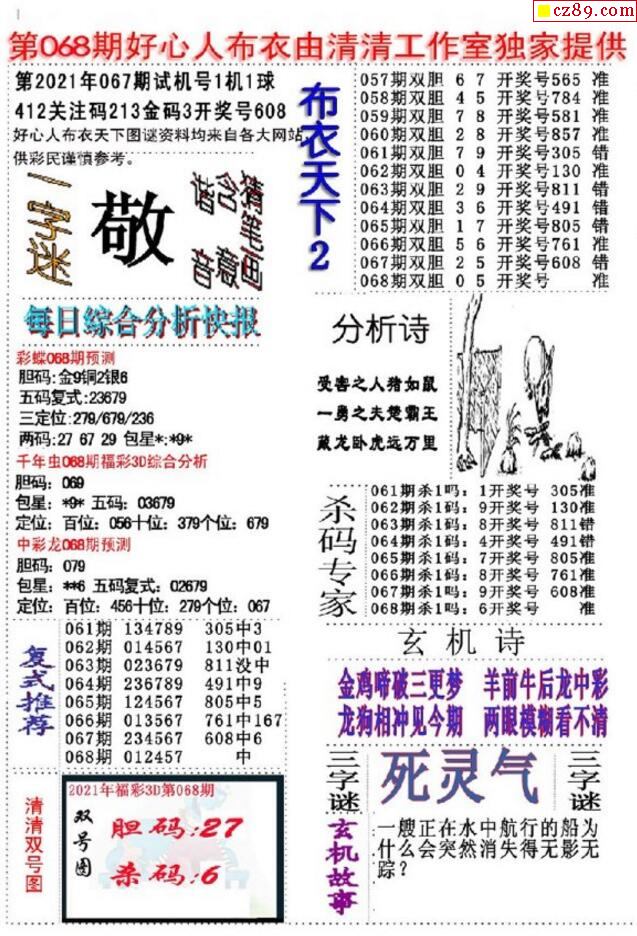 cz89.com
第068期好心人布衣由清清工作室独家提供
第2021年067期试机号1机1球
412关注码213金码3开奖号608
好心人布衣天下图谜资料均来自各大网站,
供彩民谨慎参考。
一字迷
敬
猜笔画
含意
猪音
布衣天下2
057期双胆 6 7 开奖号565 准
058期双胆 4 5 开奖号784 准
059期双胆 7 8 开奖号581 准
060期双胆 2 8 开奖号857 准
061期双胆 7 9 开奖号305 错
062期双胆 0 4 开奖号130 准
063期双胆 2 9 开奖号811 错
064期双胆 3 6 开奖号491 错
065期双胆 1 7 开奖号805 错
066期双胆 5 6 开奖号761 准
067期双胆 2 5 开奖号608 错
068期双胆 0 5 开奖号 准
每日综合分析快报
彩蝶068期预测
胆码:金9铜2银6
五码复式:23679
三定位:279/679/236
两码:27 67 29 包星*:*9*
千年虫068期福彩3D综合分析
胆码: 069
包星: *9* 五码: 03679
定位: 百位: 056十位: 379个位: 679
中彩龙068期预测
胆码: 079
包星: **6 五码复式: 02679
定位: 百位: 456十位: 279个位: 067
分析诗
受害之人猪如鼠
一勇之夫楚霸王
藏龙卧虎远万里
杀码专家
061期杀1吗: 1开奖号 305准
062期杀1码: 9开奖号 130准
063期杀1码: 8开奖号 811错
064期杀1码: 4开奖号 491错
065期杀1码: 7开奖号 805准
066期杀1码: 8开奖号 761准
067期杀1码: 9开奖号 608准
068期杀1吗: 6开奖号 准
复式推荐
061期 134789 305中3
062期 014567 130中01
063期 023679 811没中
064期 236789 491中9
065期 124567 805中5
066期 013567 761中167
067期 234567 608中6
068期 012457 中
玄机诗
金鸡啼破三更梦 羊前牛后龙中彩
龙狗相冲见今期 两眼模糊看不清
三字谜
死灵气
三字谜
清清双号图
2021年福彩3D第068期
双号图
胆码:27
杀码:6
玄机故事
一艘正在水中航行的船为
什么会突然消失得无影无
踪?